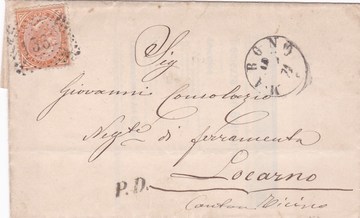 Sig
Giovanni Consolazio
Negte di ferramenta
Locarno
Canton Ticino
P.D.